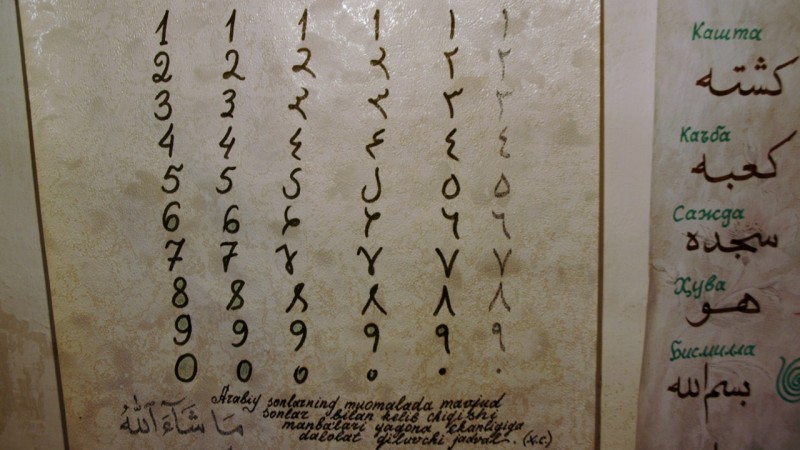 1 1 1 1 ١ ١
2 2 2 2 ٢ ٢
3 3 ٣ ٣ ٣ ٣
4 4 ٤ ٤ ٤ ٤
5 5 5 ٥ ٥
6 6 ٦ ٦ ٦ ٦
7 7 7 ٧ ٧ ٧
8 8 8 ٨ ٨ ٨
9 9 9 9 ٩ ٩
0 0 0 0 ٠ ٠
Arabiy sonlarning muomalada mavjud
sonlar bilan kelib chiqishi
manbalari yagona ekanligiga
dalolat qiluvchi jadval. (x.c)
مَا شَآءَ ٱللَّٰهُ
Кашта
کشته
Каъба
کعبه
Сажда
سجده
Ҳува
هو
Бисмилла
بسم الله